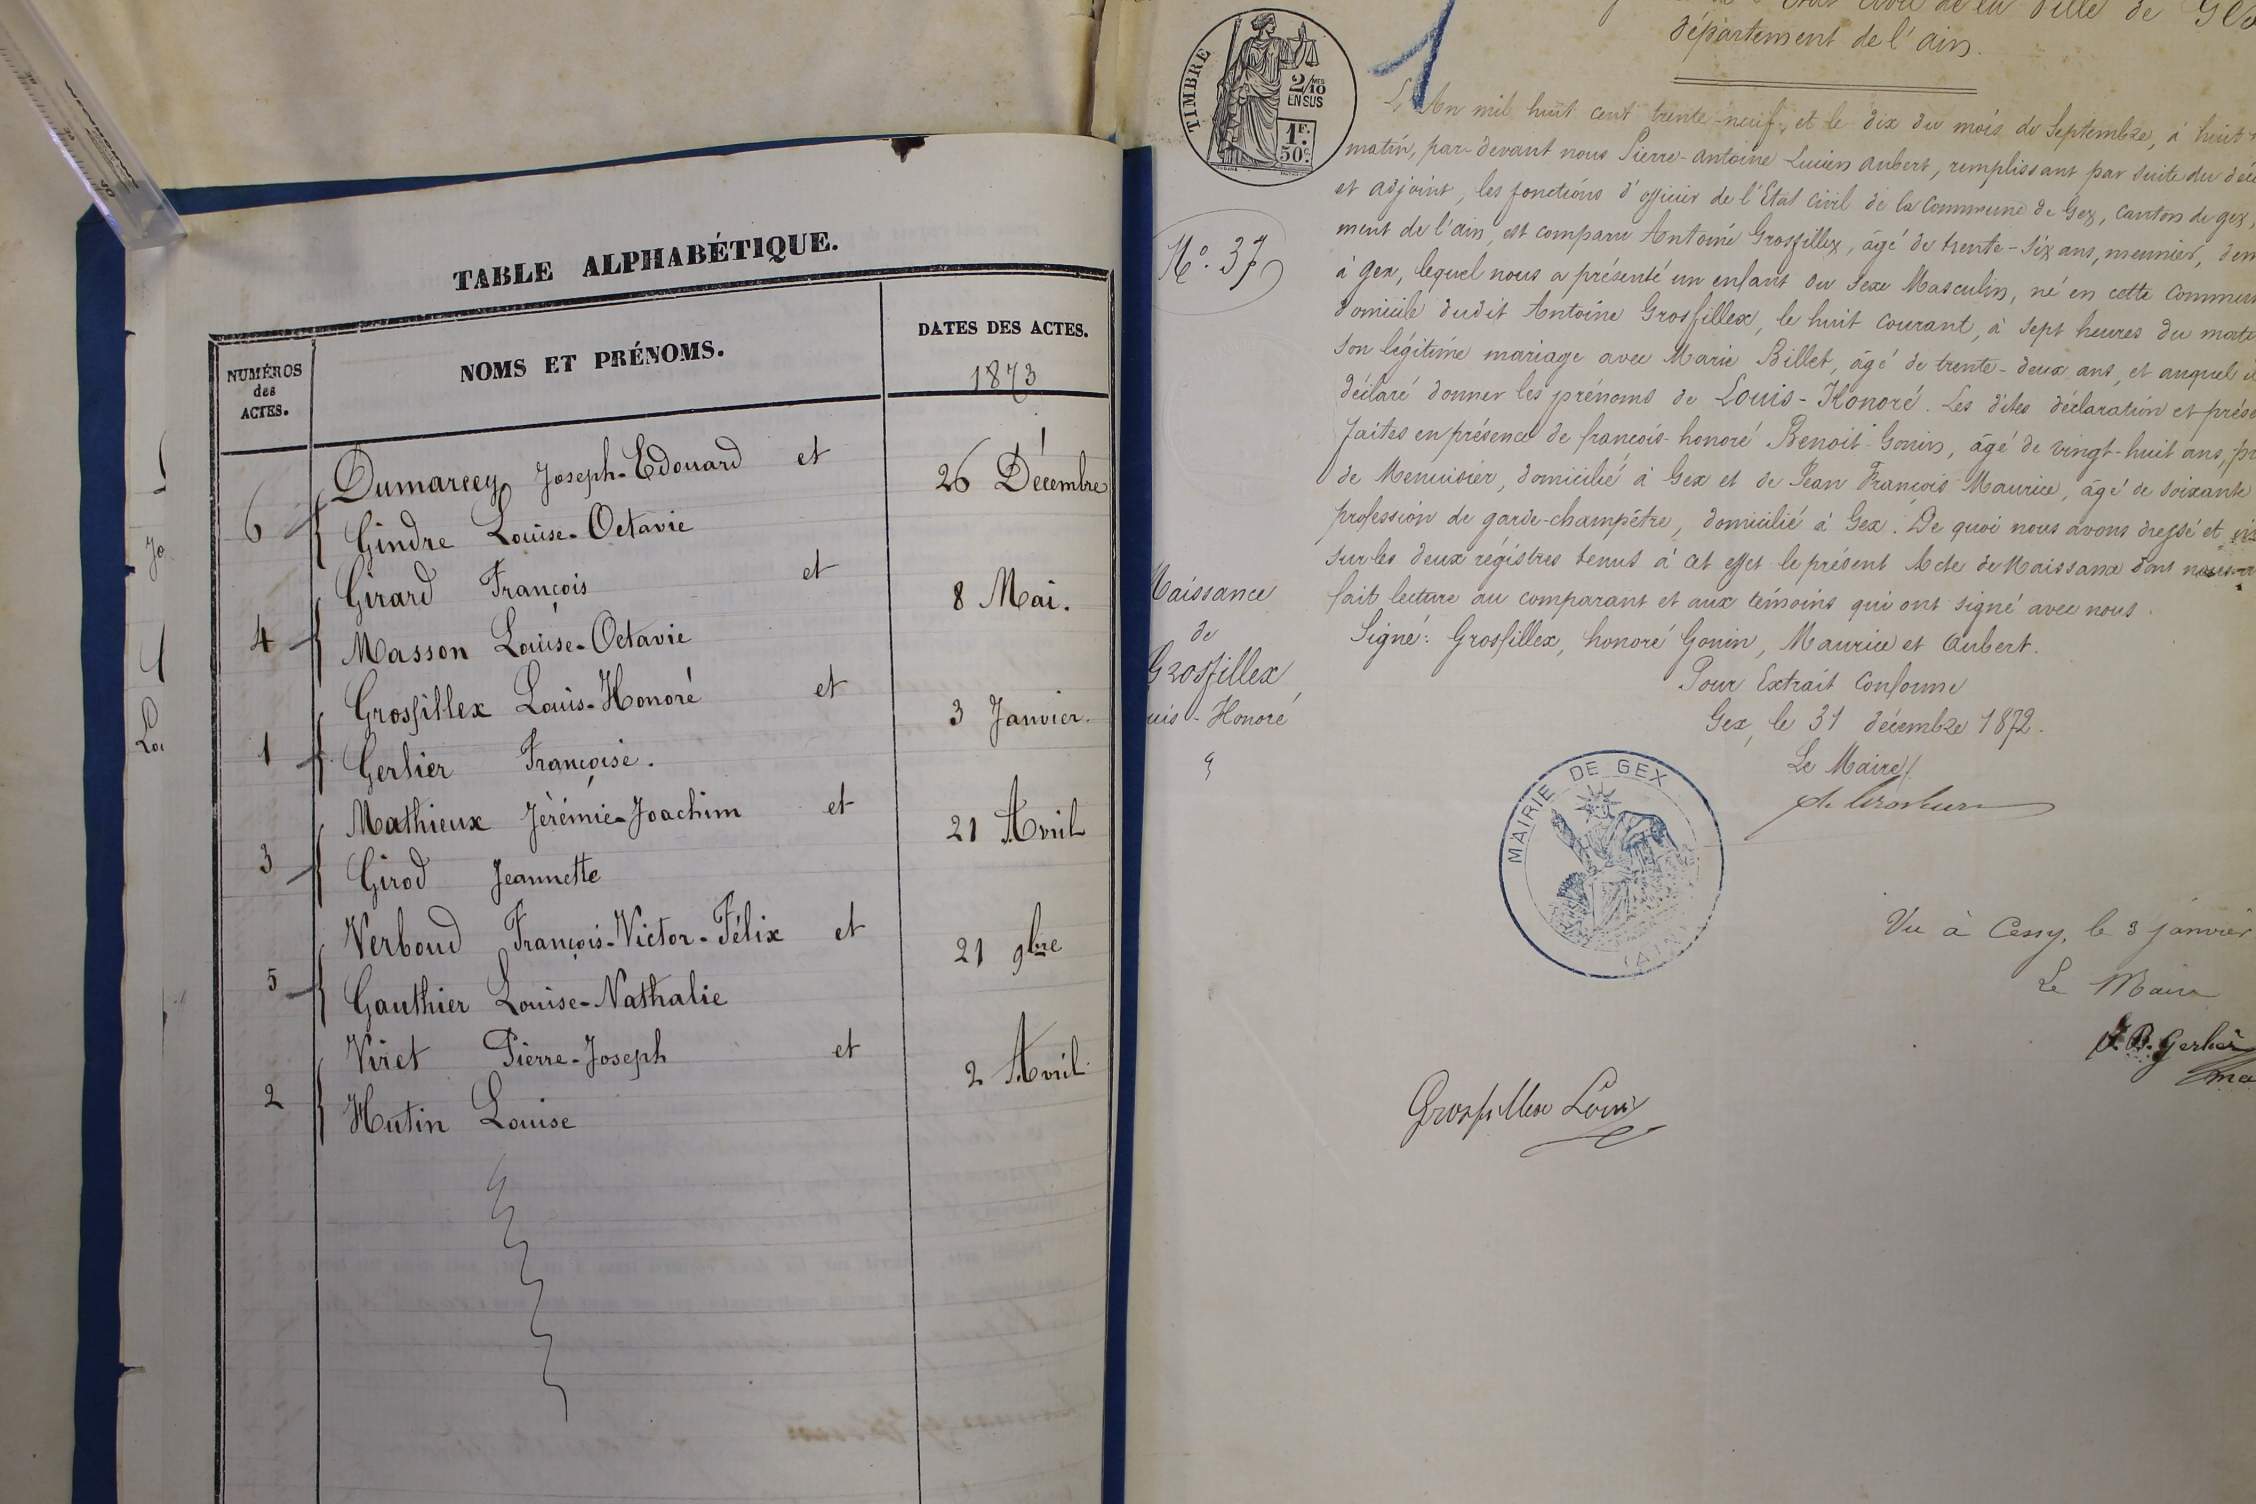 TABLE ALPHABÉTIQUE.
NUMÉROS
des
ACTES.
NOMS ET PRÉNOMS.
DATES DES ACTES.
1873
Dumarcey Joseph-Edouard et
6
26 Décembre
Gindre Louise-Octavie
Girard François et
4
8 Mai.
Masson Louise-Octavie
Grosfillex Louis-Honoré et
1
3 Janvier.
Gerlier Françoise.
Mathieux Jérémie-Joachim et
3
21 Avril
Girod Jeannette
Verboud François-Victor-Félix et
5
21 9bre
Gauthier Louise-Nathalie
Viret Pierre-Joseph et
2
2 Avril.
Hutin Louise
TIMBRE
2/10 MES
EN SUS
1F.
50c.
1
de la Ville de
département de l'ain.
L'An mil huit cent trente-neuf, et le dix du mois de Septembre, à huit
matin, par-devant nous Pierre-antoine Lucien aubert, remplissant par suite du
et adjoint, les fonctions d'officier de l'Etat civil de la Commune de Gex, canton de gex,
ment de l'ain, est comparu Antoine Grosfillex, âgé de trente-six ans, meunier, dem
à gex, lequel nous a présenté un enfant du sexe Masculin, né en cette Commun
domicile dudit Antoine Grosfillex, le huit courant, à sept heures du mati
son légitime mariage avec Marie Billet, âgé de trente-deux ans, et auquel il
déclaré donner les prénoms de Louis-Honoré. Les dites déclaration et prése
faites en présence de françois-honoré Benoit Gonin, âgé de vingt-huit ans, pr
de Menuisier, domicilié à Gex et de Jean François Maurice, âgé de soixante
profession de garde-champêtre, domicilié à Gex. De quoi nous avons dressé et
sur les deux régistres tenus à cet effet le présent Acte de Naissance dont nous
fait lecture au comparant et aux témoins qui ont signé avec nous.
Signé: Grosfillex, honoré Gonin, Maurice et Aubert.
Pour Extrait Conforme
Gex, le 31 décembre 1872.
Le Maire
No. 37
Naissance
de
Grosfillex
uis-Honoré
MAIRIE DE GEX
(AIN)
Vu à Cessy, le 3 janvier
Le Maire
J. B. Gerlier
Grosfillex Louis